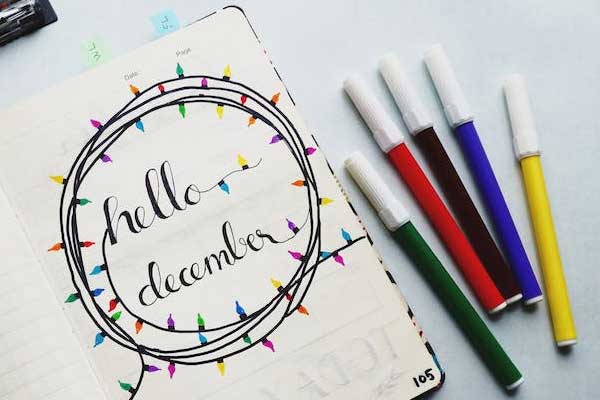 Date: Page:
hello
december
105